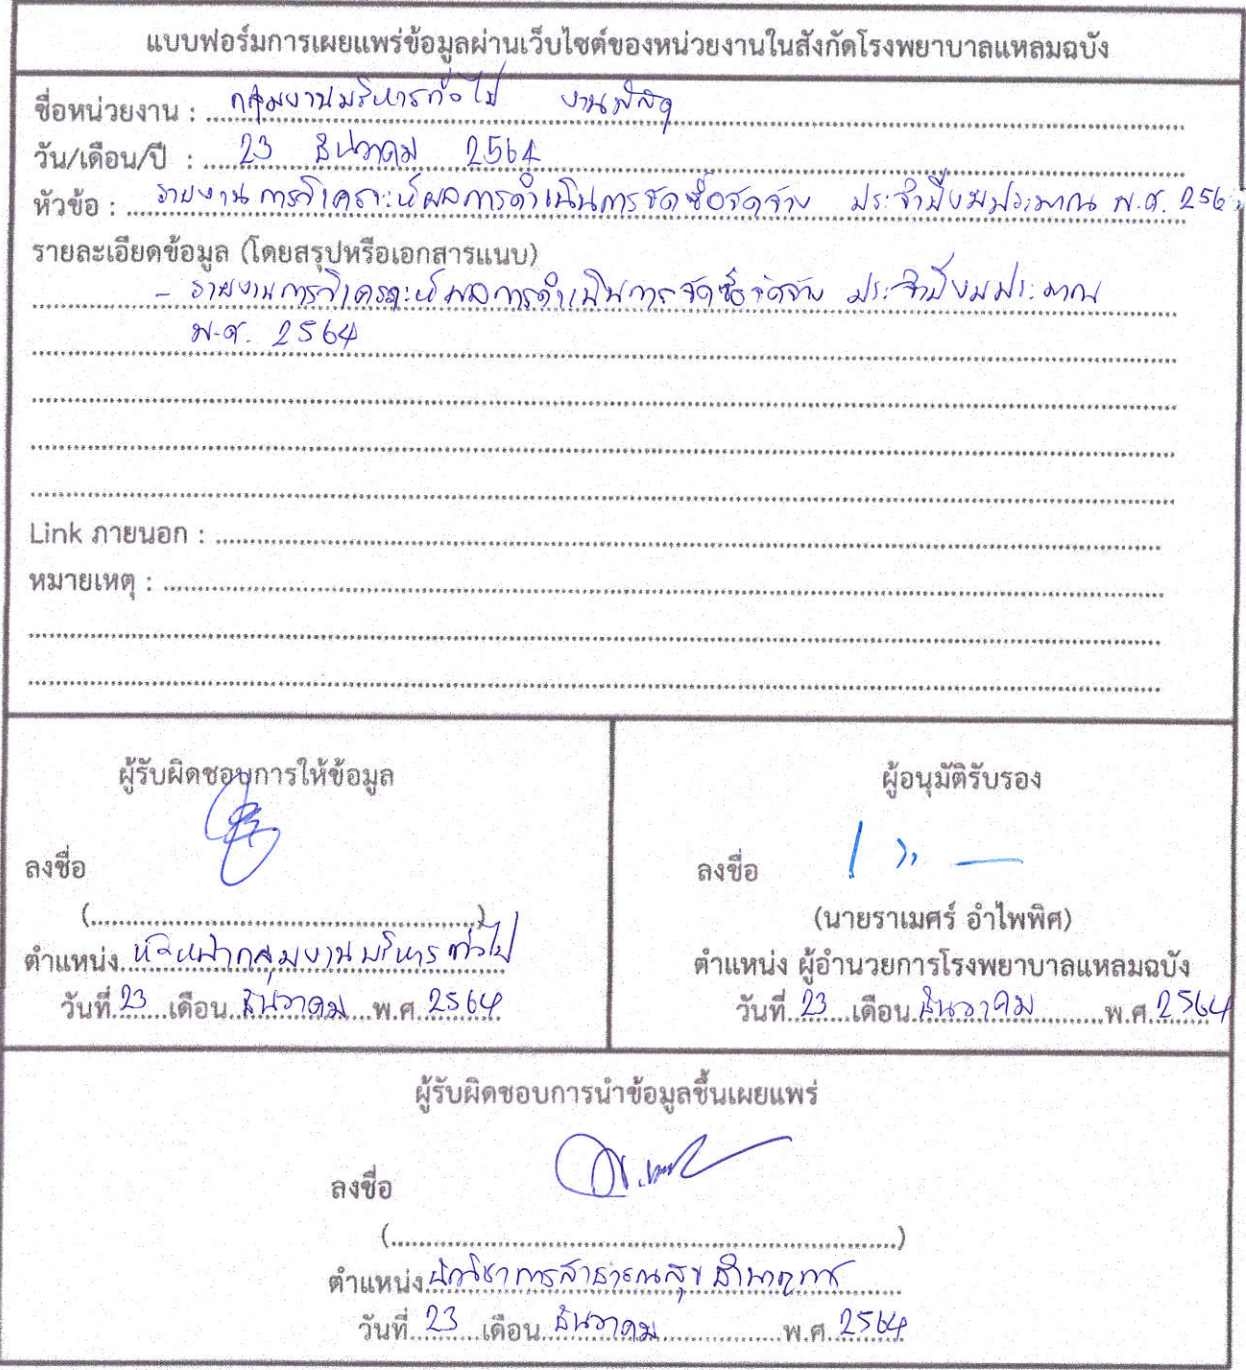 แบบฟอร์มการเผยแพร่ข้อมูลผ่านเว็บไซต์ของหน่วยงานในสังกัดโรงพยาบาลแหลมฉบัง
ชื่อหน่วยงาน : กลุ่มงานบริหารทั่วไป งานพัสดุ
วัน/เดือน/ปี : 23 ธันวาคม 2564
หัวข้อ : รายงานการวิเคราะห์ผลการดำเนินการจัดซื้อจัดจ้าง ประจำปีงบประมาณ พ.ศ. 256
รายละเอียดข้อมูล (โดยสรุปหรือเอกสารแนบ)
- รายงานการวิเคราะห์ผลการดำเนินการจัดซื้อจัดจ้าง ประจำปีงบประมาณ
พ.ศ. 2564
Link ภายนอก :
หมายเหตุ :
ผู้รับผิดชอบการให้ข้อมูล
ลงชื่อ
(....................)
ตำแหน่ง หัวหน้ากลุ่มงานบริหารทั่วไป
วันที่ 23 เดือน ธันวาคม พ.ศ. 2564
ผู้อนุมัติรับรอง
ลงชื่อ
(นายราเมศร์ อำไพพิศ)
ตำแหน่ง ผู้อำนวยการโรงพยาบาลแหลมฉบัง
วันที่ 23 เดือน ธันวาคม พ.ศ. 2564
ผู้รับผิดชอบการนำข้อมูลขึ้นเผยแพร่
ลงชื่อ
(....................)
ตำแหน่ง นักวิชาการสาธารณสุขชำนาญการ
วันที่ 23 เดือน ธันวาคม พ.ศ. 2564